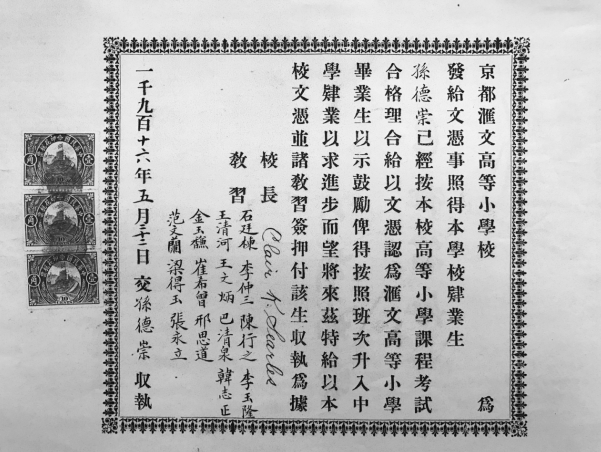 京都滙文高等小學校 為
發給文憑事照得本學校肄業生
孫德崇已經按本校高等小學課程考試
合格理合給以文憑認為滙文高等小學
畢業生以示鼓勵俾得按照班次升入中
學肄業以求進步而望將來茲特給以本
校文憑並諸教習簽押付該生收執為據
校長 Clair K. Searles
教習 石廷棟 李仲三 陳行之 李玉隆
王清河 王之炳 巴清泉 韓志正
金玉 崔希曾 邢思道
范文蘭 梁得玉 張永立
一千九百十六年五月三十三日 交孫德崇 收執